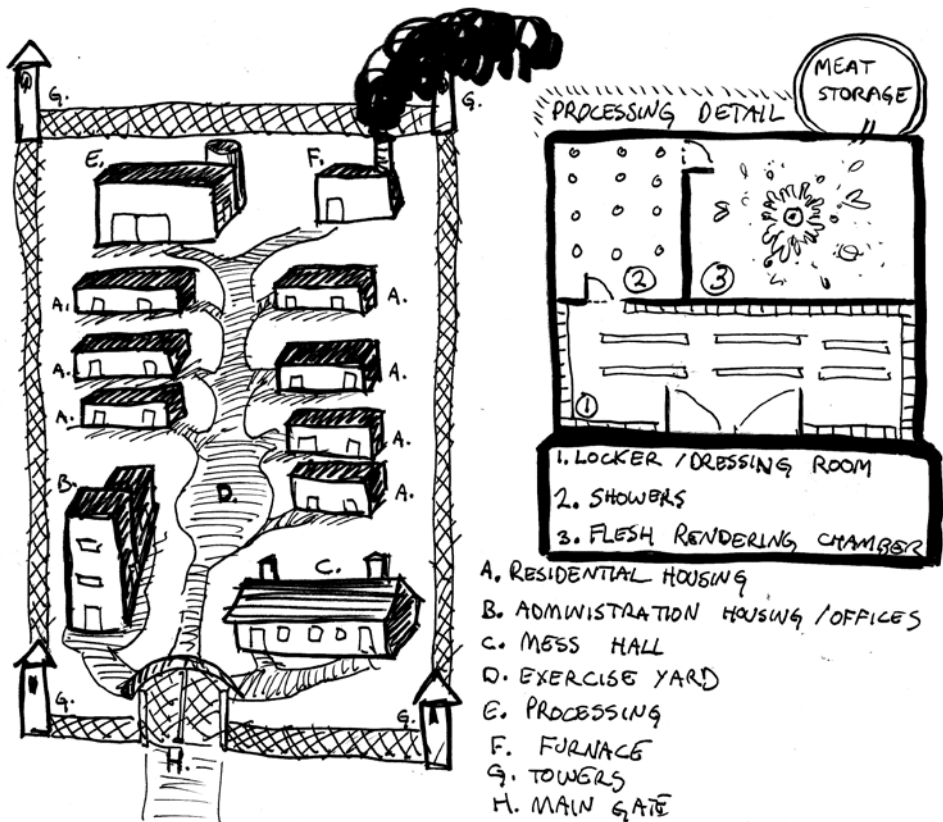 G.
G.
E.
F.
A.
A.
A.
A.
A.
A.
A.
B.
D.
C.
G.
G.
H.
PROCESSING DETAIL
MEAT
STORAGE
2
3
1
1. LOCKER / DRESSING ROOM
2. SHOWERS
3. FLESH RENDERING CHAMBER
A. RESIDENTIAL HOUSING
B. ADMINISTRATION HOUSING / OFFICES
C. MESS HALL
D. EXERCISE YARD
E. PROCESSING
F. FURNACE
G. TOWERS
H. MAIN GATE